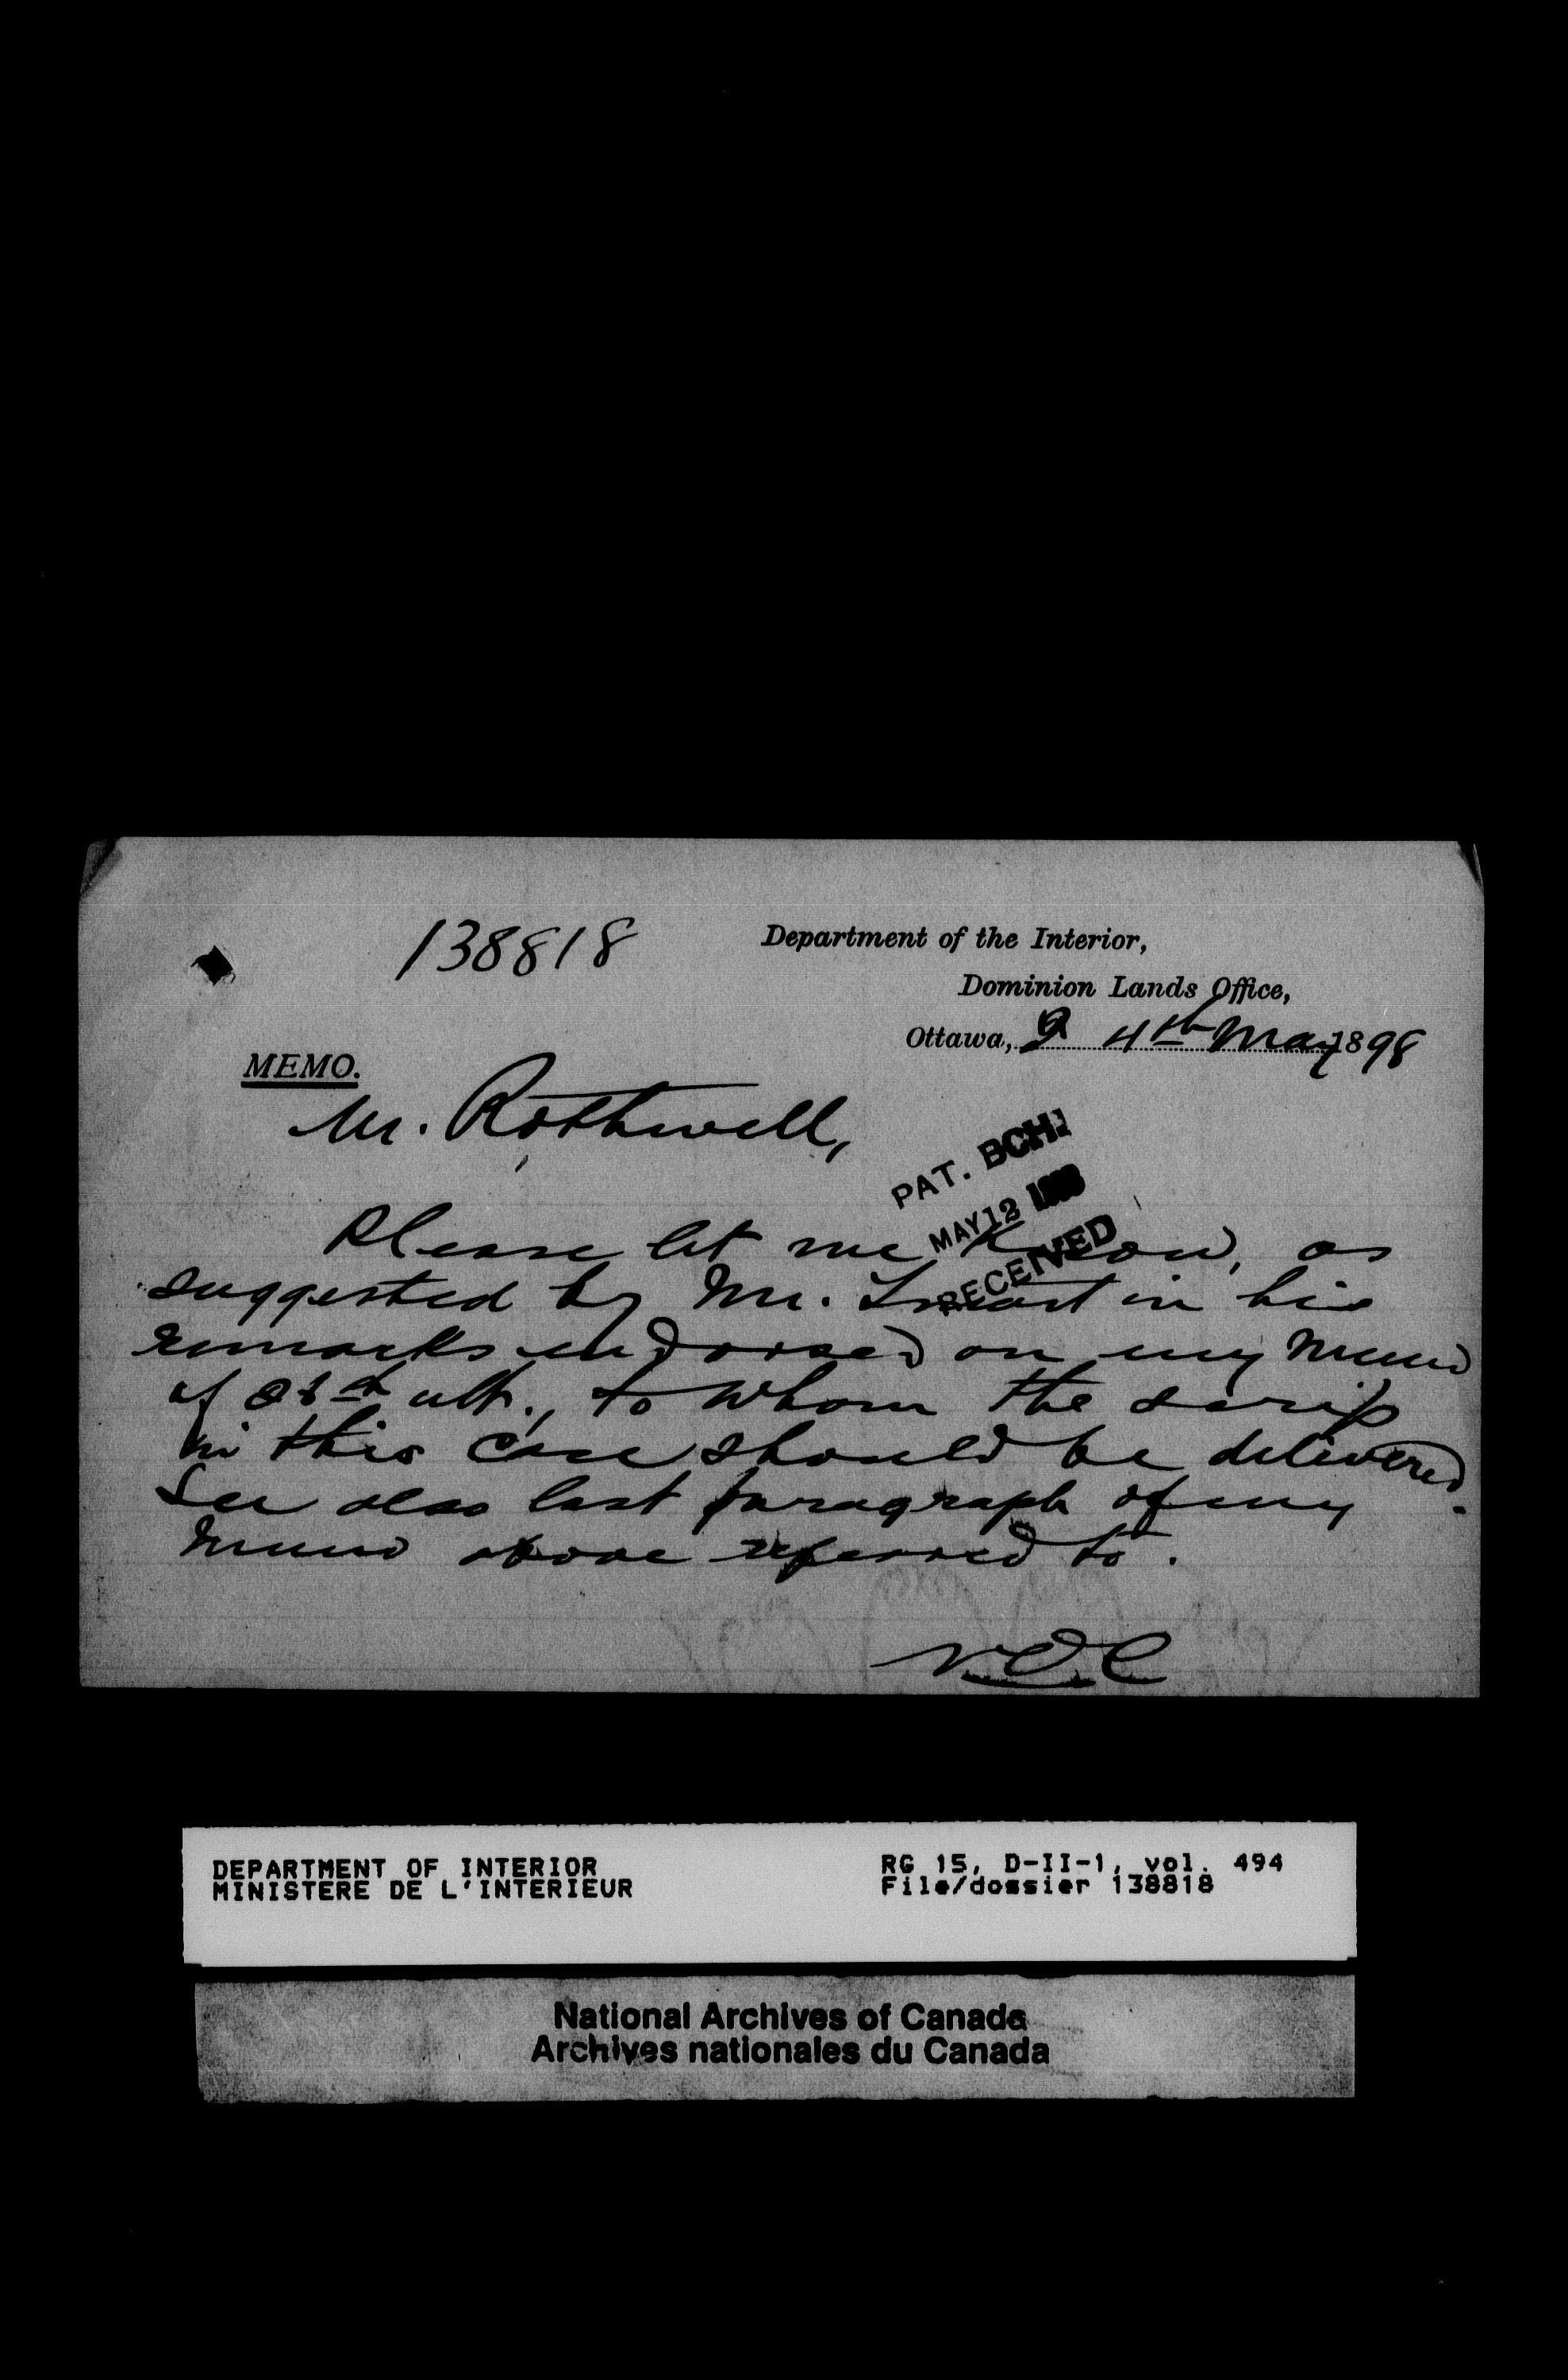 138818
Department of the Interior,
Dominion Lands Office,
Ottawa, 4th May 1898
MEMO.
Mr. Rothwell,
PAT. BCH.
MAY 12
RECEIVED
Please let me know, as
suggested by Mr. Smart in his
remarks endorsed on my memo
of ult., to whom the scrip
in this case should be delivered.
See also last paragraph of my
memo above referred to.
DEPARTMENT OF INTERIOR
MINISTERE DE L'INTERIEUR
RG 15, D-II-1, vol. 494
File/dossier 138818
National Archives of Canada
Archives nationales du Canada